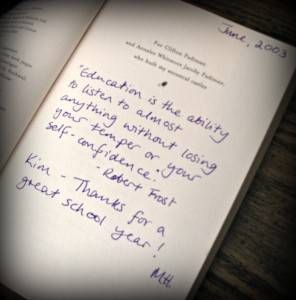 June, 2003
For Clifton Fadiman
and Annalee Whitmore Jacoby Fadiman,
who built my ancestral castles
"Education is the ability
to listen to almost
anything without losing
your temper or your
self-confidence."
- Robert Frost
Kim - Thanks for a
great school year!
MH.